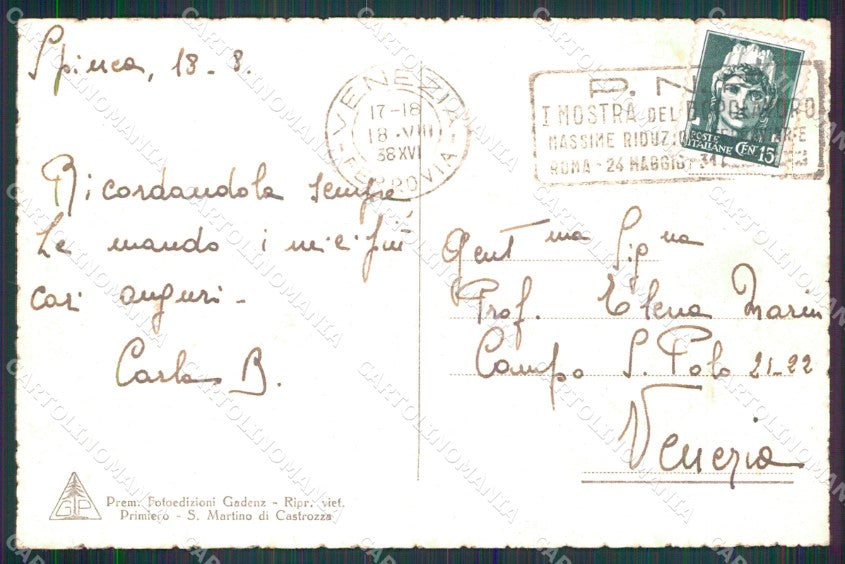 Spinea, 18-8.
Ricordandola sempre
Le mando i miei più
cari auguri -
Carla B.
VENEZIA
17-18
18·VIII
38XVI
FERROVIA
P. N.
I MOSTRA DEL DOPOLAVORO
MASSIME RIDUZIONI
ROMA - 24 MAGGIO
POSTE
ITALIANE CEN 15
Gent ma Sig na
Prof. Elena Marin
Campo S. Polo 21-22
Venezia
GP
Prem. Fotoedizioni Gadenz - Ripr. viet.
Primiero - S. Martino di Castrozza
CARTOLINOMANIA